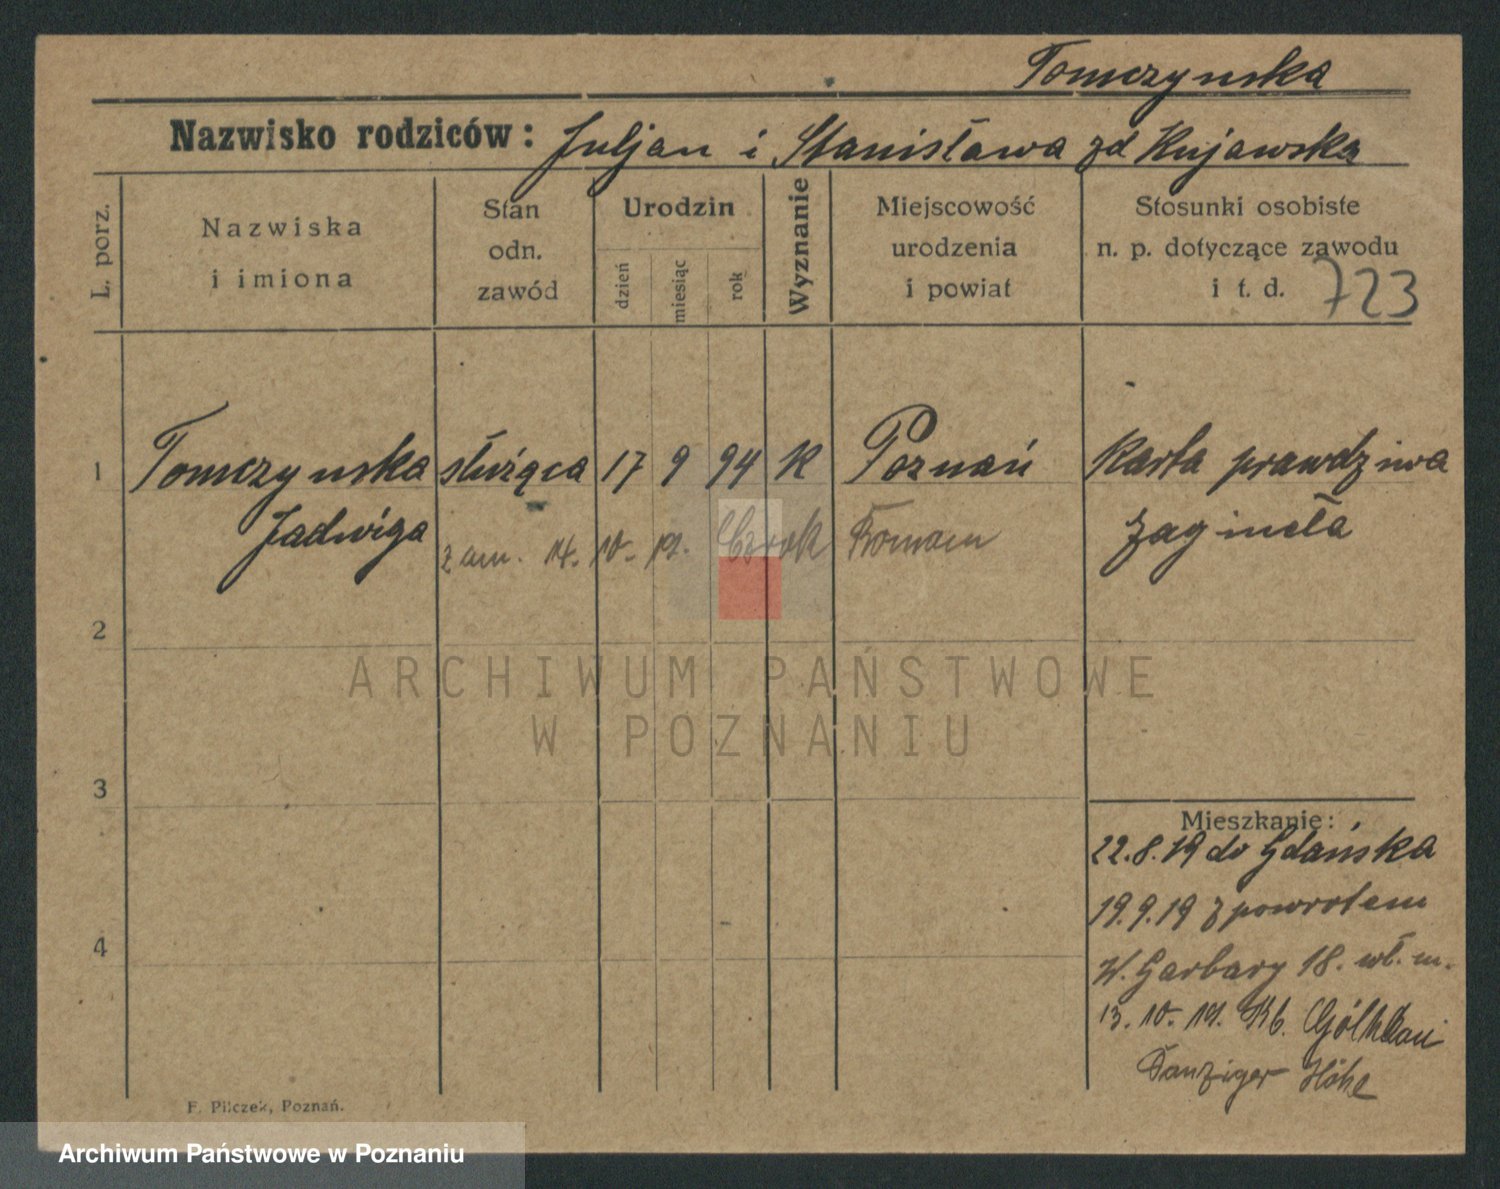 Tomczynska
Nazwisko rodziców: Juljan i Stanisława zd Kujawska
L. porz.
Nazwiska
i imiona
Stan
odn.
zawód
Urodzin
dzień
miesiąc
rok
Wyznanie
Miejscowość
urodzenia
i powiat
Stosunki osobiste
n. p. dotyczące zawodu
i t. d.
723
1 Tomczynska służąca 17 9 94 K Poznań Karta prawdziwa
Jadwiga zaginęła
zam. 14. 10. 19. Roman
2
ARCHIWUM PAŃSTWOWE
W POZNANIU
3
Mieszkanie:
22.8.19 do Gdańska
19.9.19 z powrotem
4
W. Garbary 18. wł. m.
13. 10. 19.
Danziger Höhe
F. Pilczek, Poznań.
Archiwum Państwowe w Poznaniu